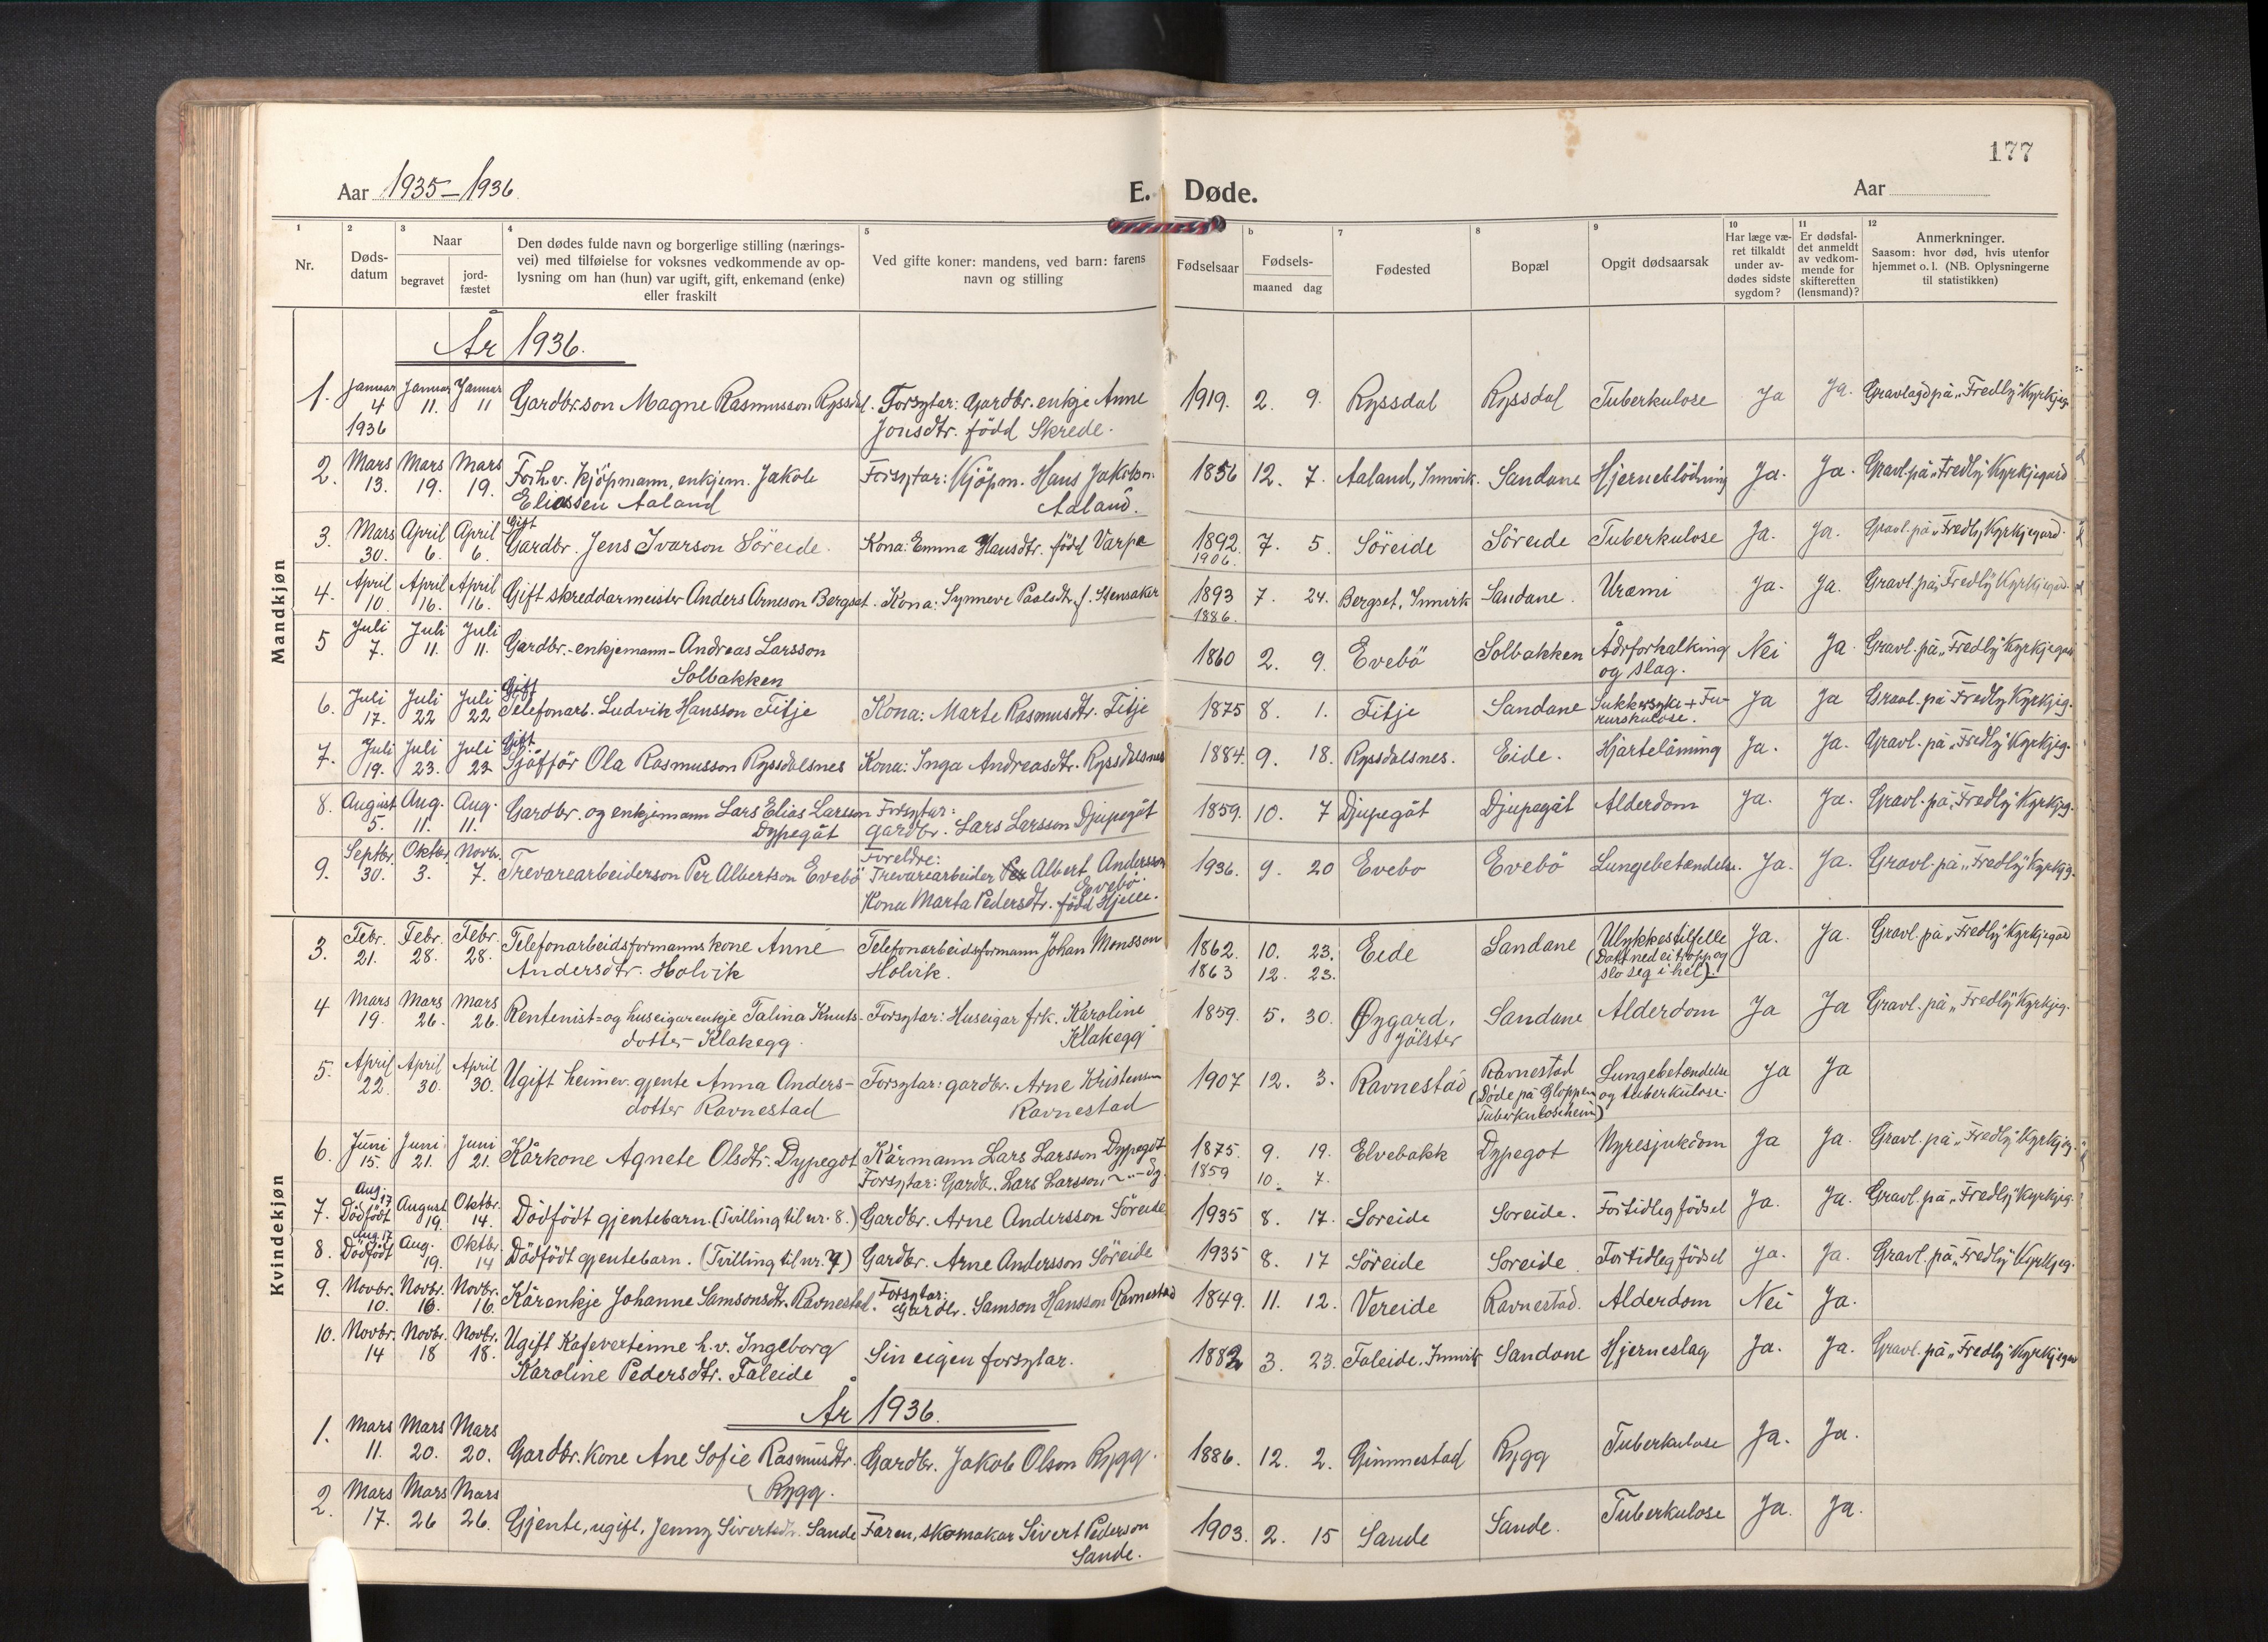 177
Aar 1935–1936
E. Døde.
Aar
1 2 3 4 5 b 7 8 9 10 11 12
Nr.
Døds-
datum
Naar
begravet
jord-
fæstet
Den dødes fulde navn og borgerlige stilling (nærings-
vei) med tilføielse for voksnes vedkommende av op-
lysning om han (hun) var ugift, gift, enkemand (enke)
eller fraskilt
Ved gifte koner: mandens, ved barn: farens
navn og stilling
Fødselsaar
Fødsels-
maaned dag
Fødested
Bopæl
Opgit dødsaarsak
Har læge væ-
ret tilkaldt
under av-
dødes sidste
sygdom?
Er dødsfal-
det anmeldt
av vedkom-
mende for
skifteretten
(lensmand)?
Anmerkninger.
Saasom: hvor død, hvis utenfor
hjemmet o. l. (NB. Oplysningerne
til statistikken)
Mandkjøn
År 1936.
1. Januar 4 1936 Januar 11. Januar 11 Gardbr.son Magne Rasmusson Ryssdal. Forsytar: Gardbr. enkje Anne
Jonsdtr. född Skrede. 1919. 2. 9. Ryssdal Ryssdal Tuberkulose Ja Ja. Gravlagd på „Fredly" Kyrkjeg.
2. Mars 13. Mars 19. Mars 19. Forhv. kjöpmann, enkjem. Jakob
Eliassen Aaland Forsytar: Kjöpm. Hans Jakobson
Aaland. 1856 12. 7. Aaland, Innvik. Sandane Hjerneblödning Ja. Ja. Gravl. på „Fredly" Kyrkjegard
3. Mars 30. April 6. April 6. Gift
Gardbr. Jens Ivarson Söreide. Kona: Emma Hansdtr. född Varpe 1892. 7. 5. Söreide Söreide Tuberkulose Ja. Ja. Gravl. på „Fredly" Kyrkjegard.
1906.
4. April 10. April 16. April 16. Gift skreddarmeister Anders Arneson Bergset. Kona: Synneve Paalsdtr. f. Stensaker 1893 7. 24. Bergset, Innvik Sandane. Uræmi Ja. Ja. Gravl. på „Fredly" Kyrkjegard.
1886.
5 Juli 7. Juli 11. Juli 11. Gardbr.-enkjemann-Andreas Larsson
Solbakken 1860 2. 9. Evebö Solbakken Ådrforkalking
og slag. Nei Ja. Gravl. på „Fredly" Kyrkjegard
6. Juli 17. Juli 22 Juli 22 Gift
Telefonarb. Ludvik Hansson Fitje Kona: Marte Rasmusdtr. Fitje 1875 8. 1. Fitje Sandane Sukkersyke + Fu-
runkulose. Ja Ja Gravl. på Fredly Kyrkjeg.
7. Juli 19. Juli 23. Juli 23 Gift
Sjåfför Ola Rasmusson Ryssdalsnes Kona: Inga Andreasdtr. Ryssdalsnes 1884. 9. 18. Ryssdalsnes. Eide. Hjartelåming Ja. Ja. Gravl. på „Fredly" Kyrkjeg.
8. August 5. Aug. 11. Aug. 11. Gardbr. og enkjemann Lars Elias Larsson
Dypegåt Forsytar:
gardbr. Lars Larsson Djupegåt 1859. 10. 7 Djupegåt Djupegåt Alderdom Ja. Ja. Gravl. på „Fredly" Kyrkjeg.
9. Septbr. 30. Oktbr. 3. Novbr. 7. Trevarearbeiderson Per Albertson Evebö Foreldre:
Trevarearbeider Per Albert Andersson
Evebö.
Kona Marta Pedersdtr. född Hjelle. 1936. 9. 20 Evebo Evebö Lungebetændelse. Ja. Ja. Gravl. på „Fredly" Kyrkjg.
Kvindekjøn
3. Febr. 21. Febr. 28. Febr. 28. Telefonarbeidsformannskone Anne
Andersdtr. Holvik Telefonarbeidsformann Johan Monsson
Holvik. 1862. 10. 23. Eide Sandane Ulykkestilfelle
(Datt ned ei tropp og
slo seg i hel). Ja. Ja. Gravl. på „Fredly" Kyrkjegard
1863 12. 23.
4 Mars 19. Mars 26. Mars 26. Rentenist= og huseigarenkje Talina Knuts-
dotter Klakegg. Forsytar: Huseigar frk. Karoline
Klakegg 1859. 5. 30. Øygard,
Jölster Sandane Alderdom Ja Ja Gravl. på „Fredly" Kyrkjeg.
5. April 22. April 30. April 30. Ugift heimev. gjente Anna Anders-
dotter Ravnestad Forsytar: gardbr. Arne Kristensen
Ravnestad 1907 12. 3. Ravnestad Ravnestad
(Döde på Gloppen
Tuberkuloseheim) Lungebetændelse
og tuberkulose. Ja Ja
6. Juni 15. Juni 21. Juni 21. Kårkone Agnete Olsdtr. Dypegot Kårmann Lars Larsson Dypegot
Forsytar: Gardb. Lars Larsson ~ – Dy. 1875. 9. 19. Elvebakk Dypegot Nyresjukdom Ja Ja. Gravl. på „Fredly" Kyrkjeg.
1859 10. 7.
7. Aug. 17 Dödfödt August 19. Oktbr. 14. Dödfödt gjentebarn. (Tvilling til nr. 8.) Gardbr. Arne Andersson Söreide 1935 8. 17. Soreide Soreide. Fortidleg födsel Ja. Ja. Gravl. på „Fredly" Kyrkjeg.
8. Aug. 17 Dödfödt Aug. 19. Oktbr. 14 Dödfödt gjentebarn. (Tvilling til nr. 7) Gardbr. Arne Andersson Söreide 1935 8. 17 Söreide Soreide. Fortidleg födsel Ja. Ja. Gravl. på „Fredly" Kyrkjeg.
9. Novbr. 10. Novbr. 16. Novbr. 16. Kårenkje Johanne Samsonsdtr. Ravnestad. Forsytar:
Gardbr. Samson Hansson Ravnestad 1849. 11. 12. Vereide Ravnestad. Alderdom Nei Ja.
10. Novbr. 14 Novbr. 18 Novbr. 18. Ugift Kafevertinne h.v. Ingeborg
Karoline Pedersdtr. Faleide Sin eigen forsytar. 1882 3. 23. Faleide. Innvik Sandane Hjerneslag Ja. Ja. Gravl. på „Fredly" Kyrkjegard
År 1936.
1. Mars 11. Mars 20. Mars 20. Gardbr. Kone Ane Sofie Rasmusdtr.
Rygg. Gardbr. Jakob Olson Rygg. 1886. 12. 2. Gimmestad Rygg Tuberkulose Ja. Ja.
2. Mars 17. Mars 26 Mars 26. Gjente, ugift, Jenny Sivertsdtr. Sande Faren, skomakar Sivert Pederson
Sande. 1903. 2. 15 Sande Sande. Tuberkulose Ja. Ja.